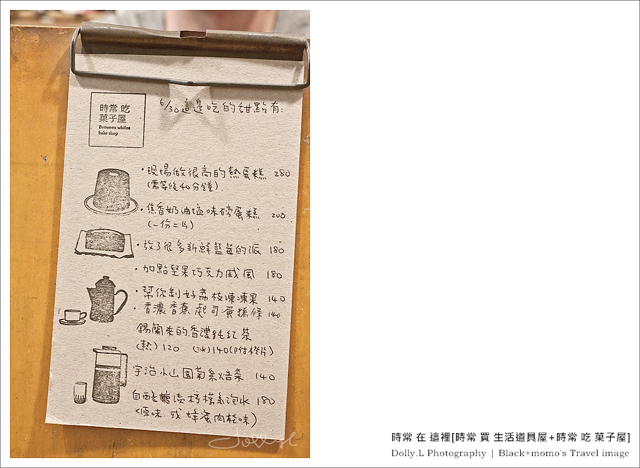 時常 吃
菓子屋
Between whiles
bake shop
6/30 這是吃的甜點有:
・現場做很高的熱蛋糕 280
(需等後40分鐘)
・焦香奶油塩味磅蛋糕 200
・放了很多新鮮藍莓的派 180
・加點堅果巧克力戚風 180
・幫你剝好荔枝凍凍果 140
・香濃香蕉起司蛋糕條 140
錫蘭來的香濃純紅茶
(熱) 120 (冰) 140 (附檸片)
宇治小山園菊系焙茶 140
180
(原味 或 蜂蜜肉乾味)
Dolly.L
時常 在 這裡[時常 買 生活道具屋+時常 吃 菓子屋]
Dolly.L Photography | Black+momo`s Travel image